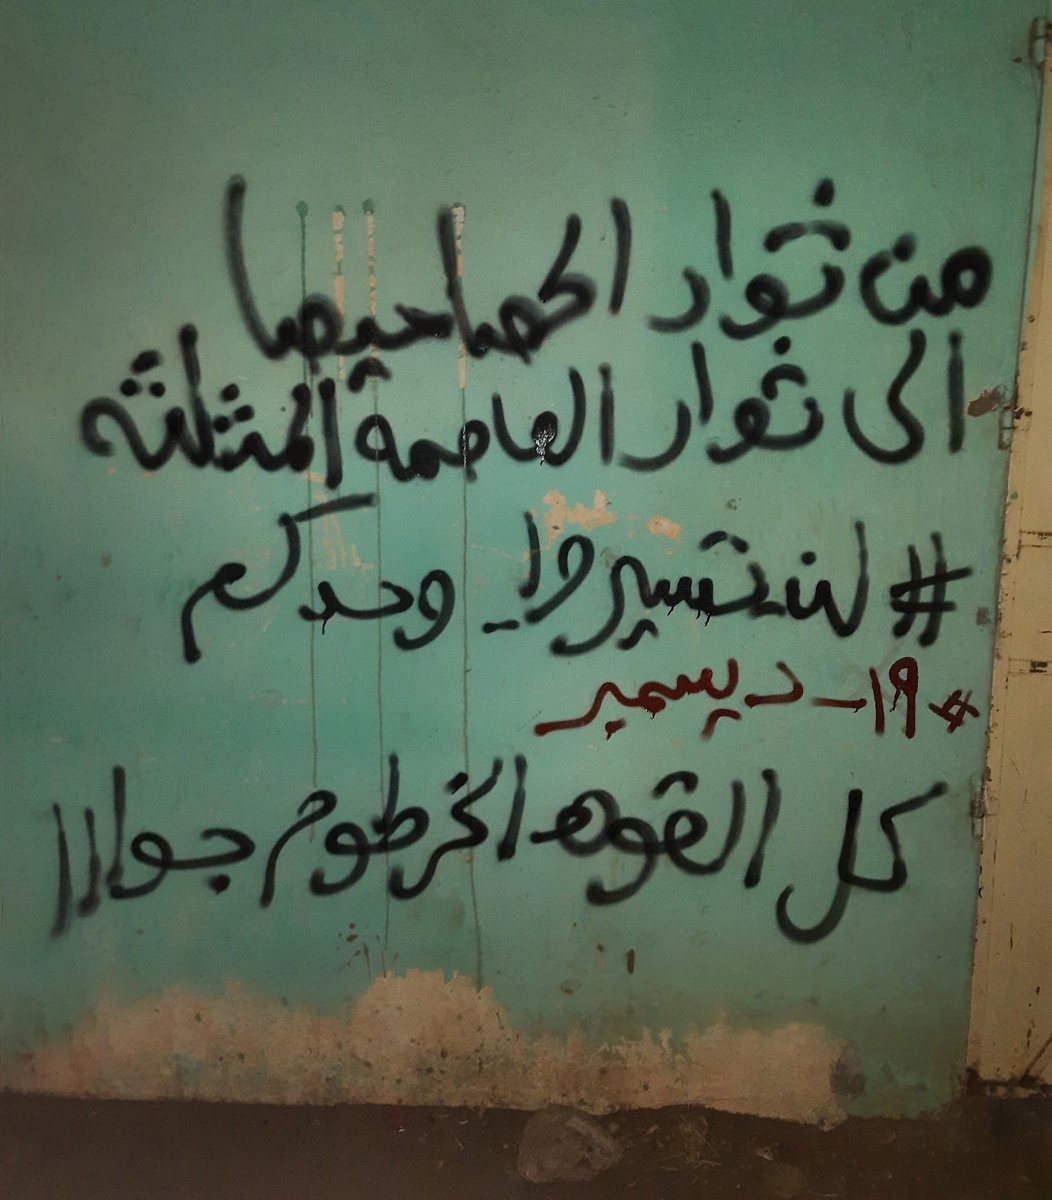 من ثوار الحصاحيصا
الى ثوار العاصمة المثلثه
#لن_تسيروا_وحدكم
#١٩_ديسمبر
كل القوه الخرطوم جوااا